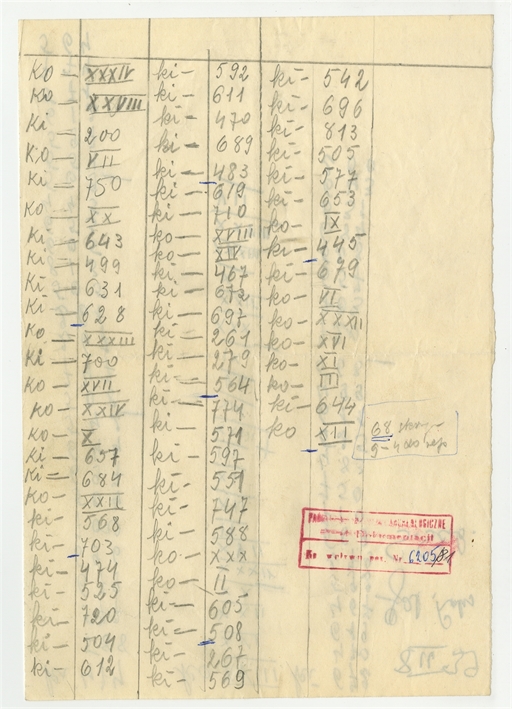 Ko — XXXIV
Ko — XXVIII
Ki — 200
Ko — VII
Ki — 750
Ko — XX
Ki — 643
Ki — 499
Ki — 631
Ki — 628
Ko — XXXIII
Ki — 700
Ko — XVII
Ko — XXIV
Ko — X
Ki — 657
Ki — 684
Ko — XXII
ki — 568
ki — 703
ki — 474
ki — 525
ki — 720
ki — 504
ki — 612
ki — 592
ki — 611
ki — 470
ki — 689
ki — 483
ki — 619
ki — 710
ko — XVIII
ko — XIV
ki — 467
ki — 672
ki — 697
ki — 261
ki — 279
ki — 564
ki — 774
ki — 571
ki — 597
ki — 551
ki — 747
ki — 588
ko — XXX
ko — II
ki — 605
ki — 508
ki — 267
ki — 569
ki — 542
ki — 696
ki — 813
ki — 505
ki — 577
ki — 653
ko — IX
ki — 445
ki — 679
ko — VI
ko — XXXII
ko — XVI
ko — XI
ko — III
ki — 644
ko XII
68
Nr 6205/81